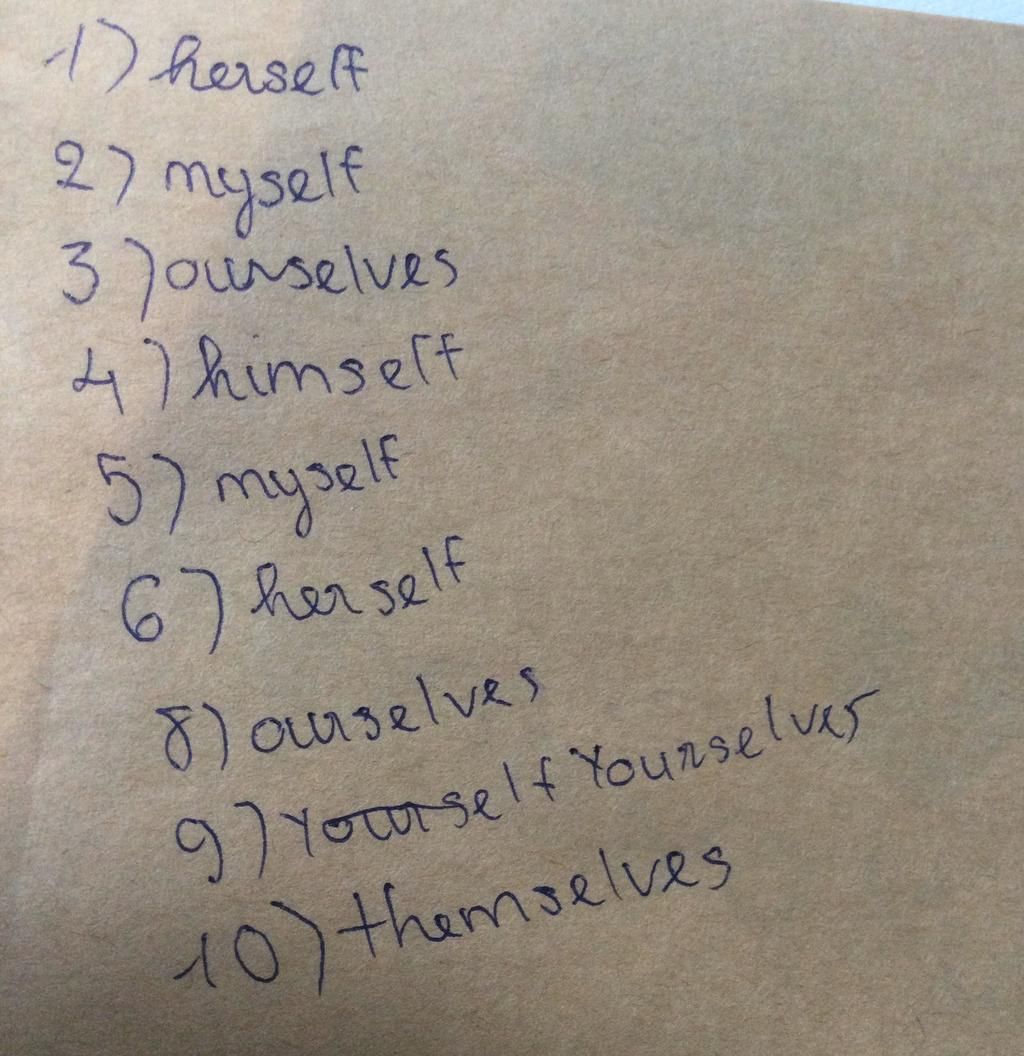 1) herself
2) myself
3) ourselves
4) himself
5) myself
6) herself
8) ourselves
9) Yourself Yourselves
10) themselves